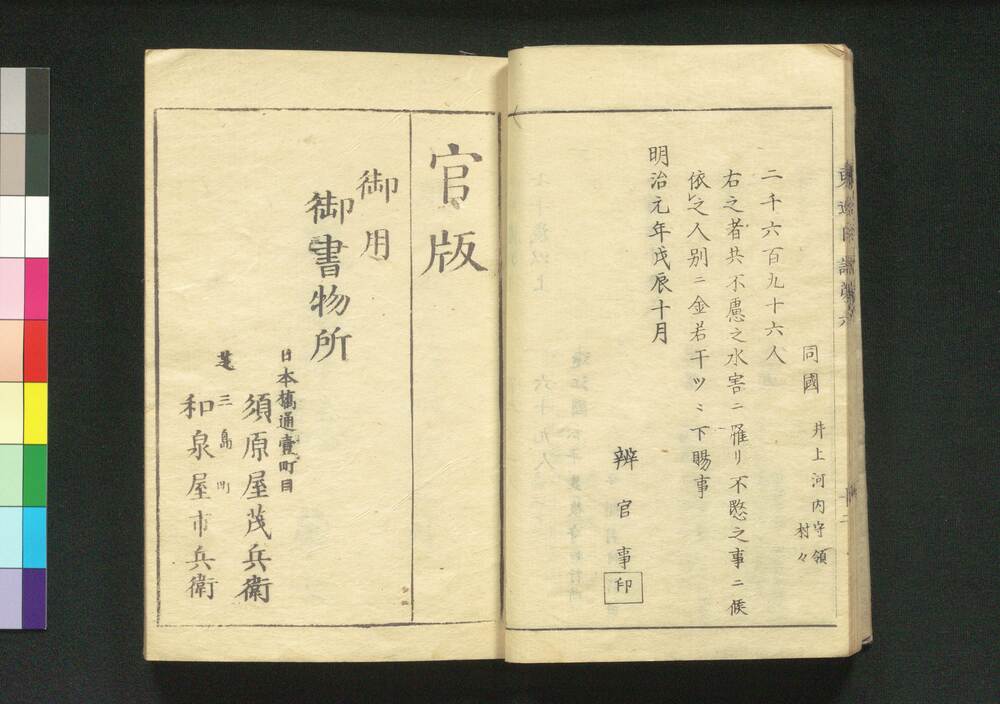 同國
井上河内守領
村々
二千六百九十六人
右之者共不慮之水害ニ罹リ不愍之事ニ候
依之人別ニ金若干ツヽ下賜事
明治元年戊辰十月
辨官事印
官版
御用
御書物所
日本橋通壹町目
須原屋茂兵衛
芝三島町
和泉屋市兵衛